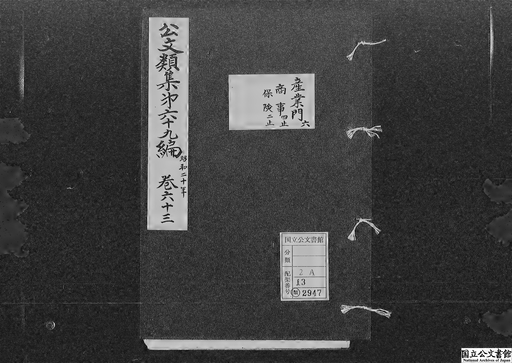 公文類集第六十九編 昭和二十年 巻六十三
産業門 六
商事 四止
保険 二止
国立公文書館
分類
配架番号
2A
13
類 2947
国立公文書館
National Archives of Japan